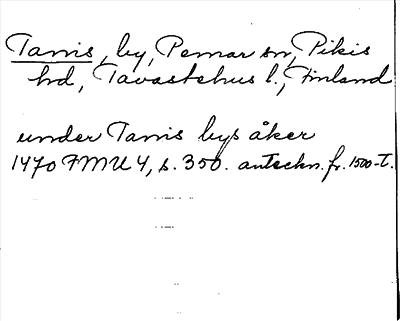 Tanis, by, Pemar sn, Pikis
hd, Tavastehus l., Finland
under Tanis bys åker
1470 FMU 4, s. 350. anteckn. fr. 1500-t.